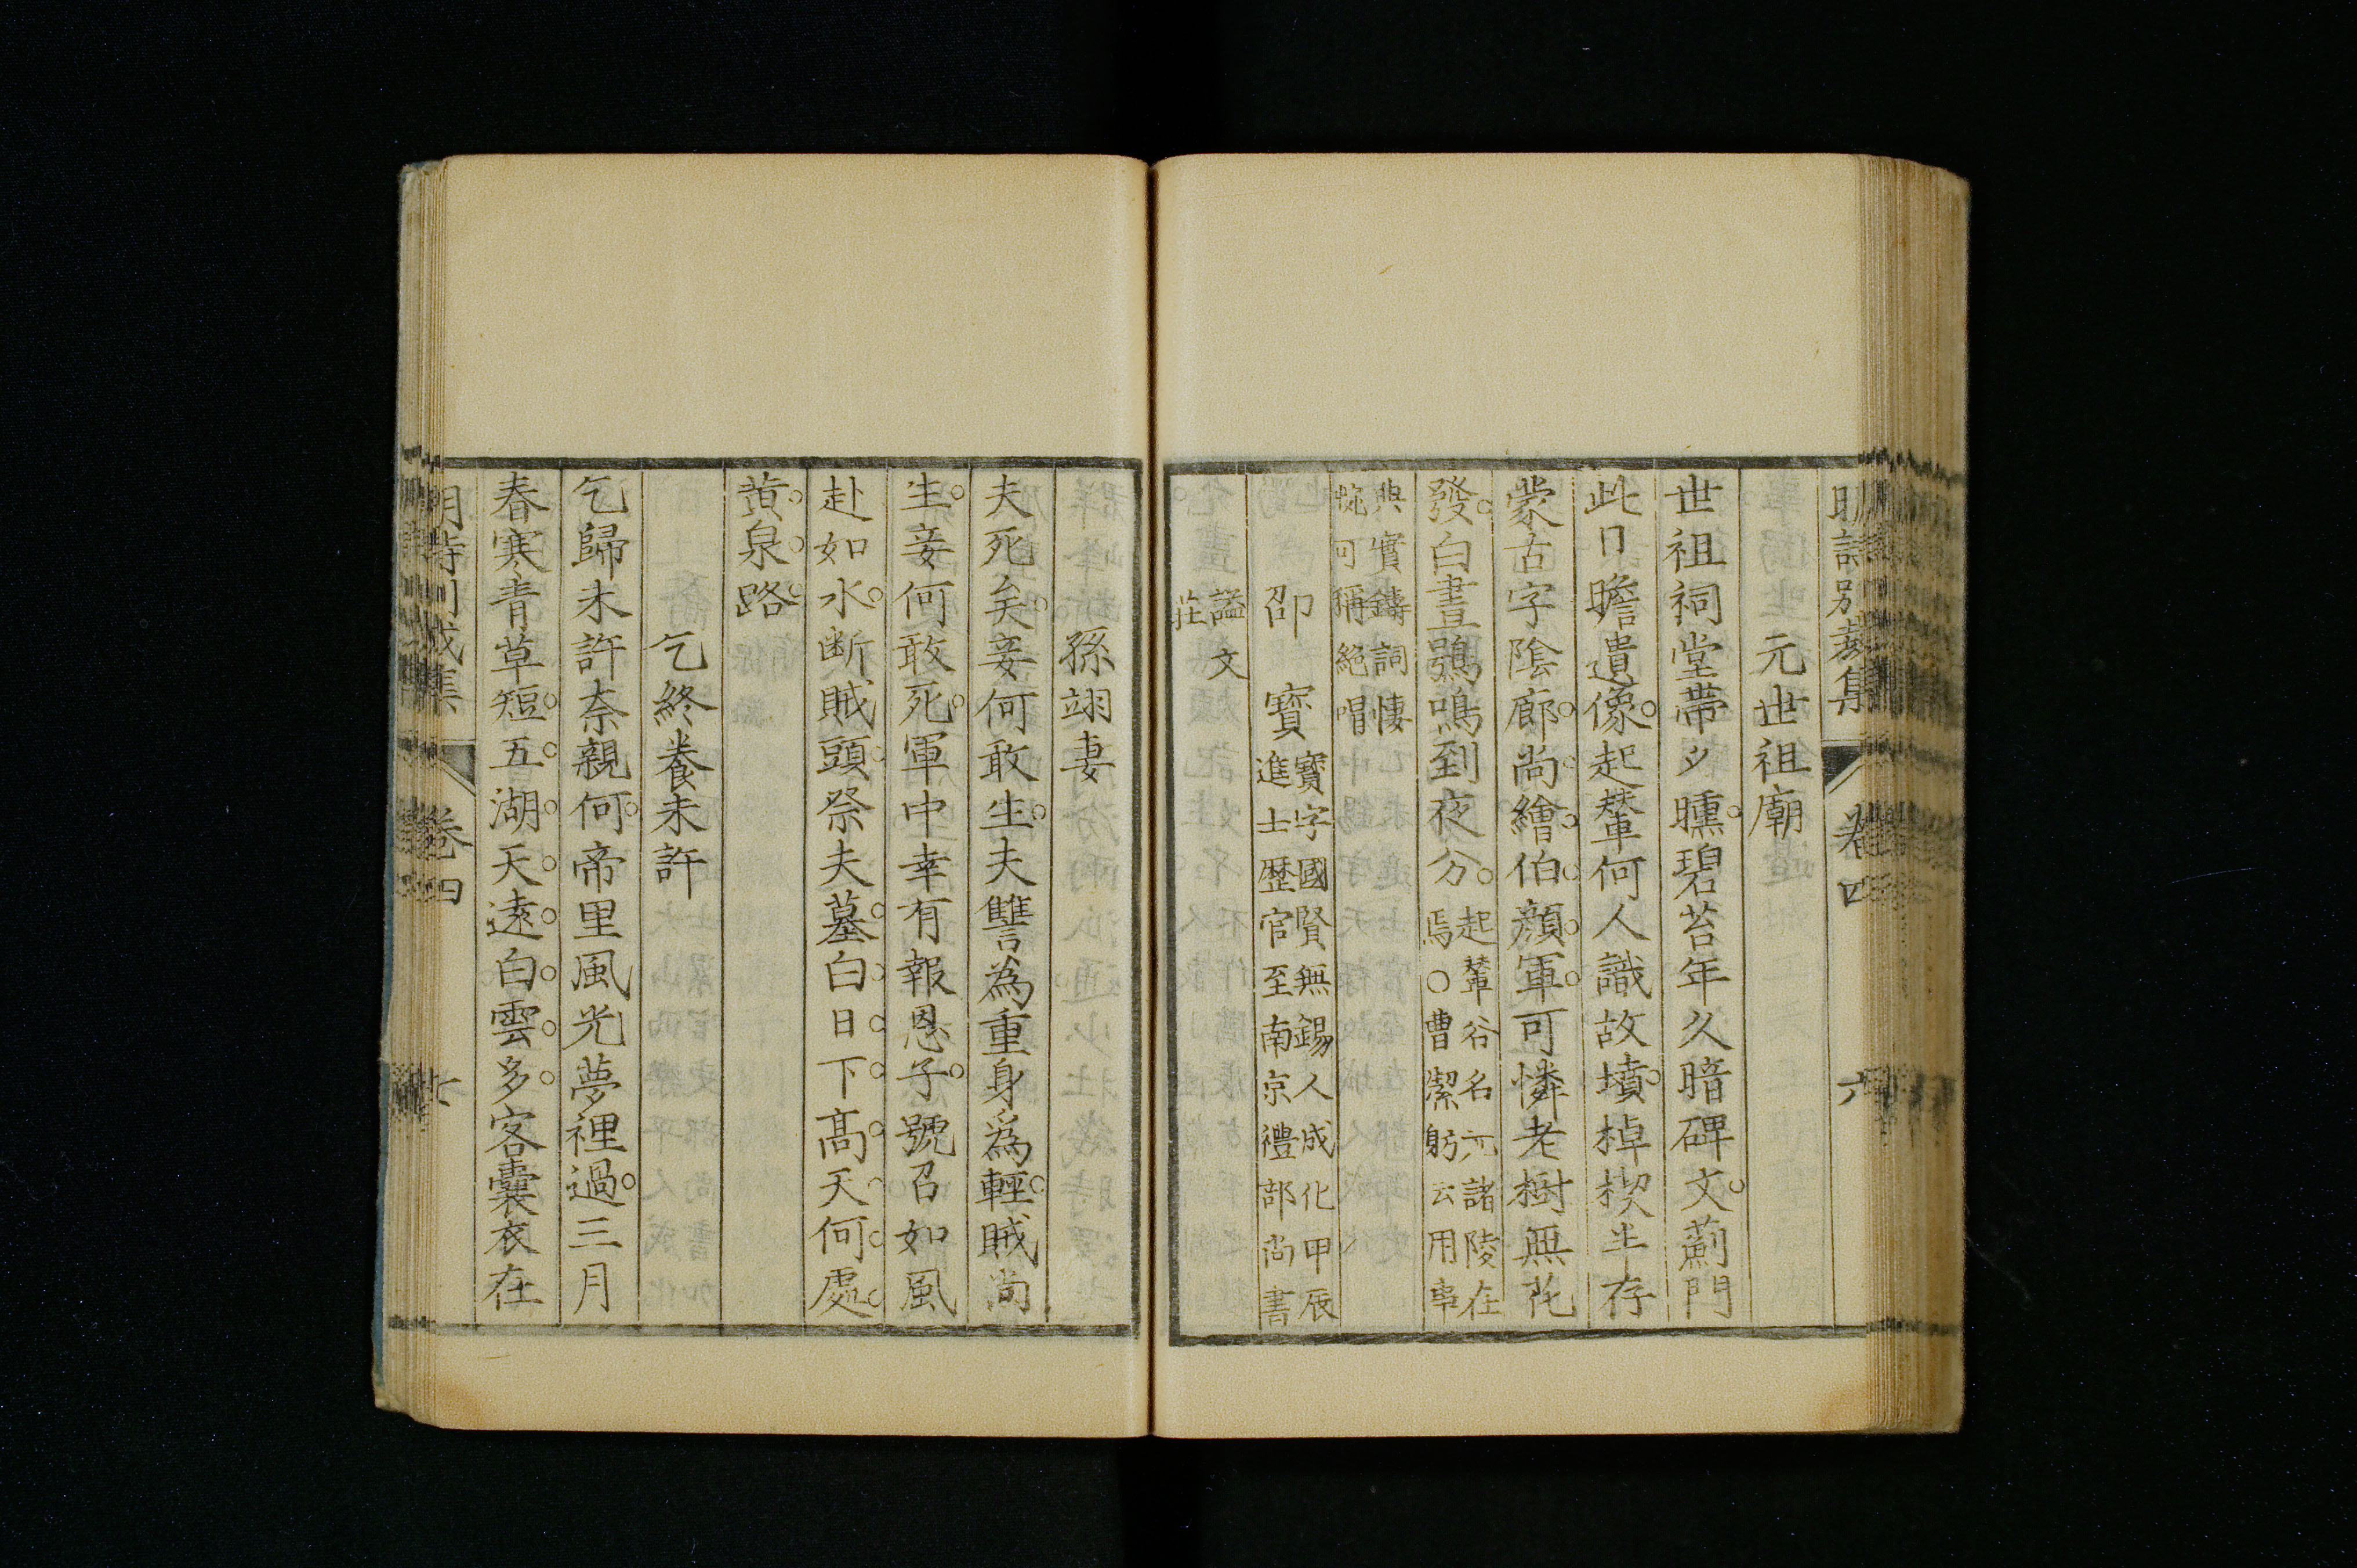 明詩別裁集 卷四 六
元世祖廟
世祖祠堂帶夕曛碧苔年久暗碑文薊門
此日瞻遺像起輦何人識故墳棹楔半存
蒙古字陰廊尚繪伯顏軍可憐老樹無花
發白晝鴞鳴到夜分
起輦谷名六諸陵在
焉○曹潔躬云用事
典實鑄詞悽
惋可稱絕唱
邵寶
寶字國賢無錫人成化甲辰
進士歷官至南京禮部尚書
諡文
莊
孫翊妻
夫死矣妾何敢生夫讐為重身爲輕賊尚
生妾何敢死軍中幸有報恩子號召如風
赴如水断賊頭祭夫墓白日下高天何處
黄泉路
乞終養未許
乞歸未許奈親何帝里風光夢裡過三月
春寒青草短五湖天遠白雲多客囊衣在
明詩別裁集 卷四 七